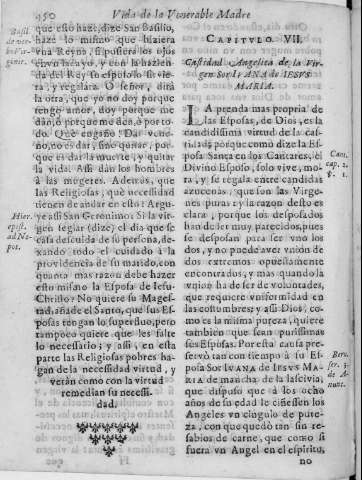 450
Vida de la Venerable Madre
que esto haze, dize San Basilio,
haze lo mismo que hiziera
vna Reyna, si pusiera los ojos
en vn lacayo, y con la hazien
da del Rey su esposo lo sirvie
ra, y regalara. O señor, dirá
la otra, que yo no doy porque
tengo amor, doy porque me
dan, ò porque me den, ò por to
do. Què engaño! Dar vene
no, no es dar, sino quitar, por
que es dar la muerte, y quitar
la vida. Assi dan los hombres
à las mugeres. Demàs, que
las Religiosas, què necessidad
tienen de andar en esto? Argu
ye assi San Geronimo: Si la vir
gen seglar (dize) el dia que se
casa descuida de su persona, de
xando todo el cuidado à la
providencia de su marido, con
quanta mas razon debe hazer
esto mismo la Esposa de Iesu
Christo? No quiere su Mages
tad, añade el Santo, que sus Es
posas tengan lo superfluo, pero
tampoco quiere que les falte
lo necessario; y assi, en esta
parte las Religiosas pobres ha
gan de la necessidad virtud, y
veràn como con la virtud
remedian su necessi
dad.
Hier.
epist.
ad Ne
pot.
CAPITVLO VII.
Castidad Angelica de la Vir
gen Sor IVANA de IESVS
MARIA.
LA prenda mas propria de
las Esposas, de Dios, es la
candidissima virtud de la cas
tidad; porque como dize la Es
posa Santa en los Cantares, el
Divino Esposo, solo vive, mo
ra, y se regala entre candidas
azucenas; que son las Virge
nes puras: y la razon desto es
clara, porque los desposados
han de ser muy parecidos, pues
se desposan para ser vno los
dos, y no puede aver vnion de
dos extremos opuestamente
encontrados; y mas quando la
vnion ha de ser de voluntades,
que requiere vniformidad en
las costumbres; y assi Dios, co
mo es la misma pureza, quiere
tambien que sean purissimas
sus Esposas. Por esta causa pre
servò tan con tiempo à su Es
posa Sor IVANA DE IESVS MA
RIA de mancha de lascivia,
que dispuso que à los ocho
años de su edad le ciñessen los
Angeles vn cingulo de pure
za, con que quedò tan sin re
sabios de carne, que como si
fuera vn Angel en el espiritu,
no
Cant.
cap. 2.
Bern.